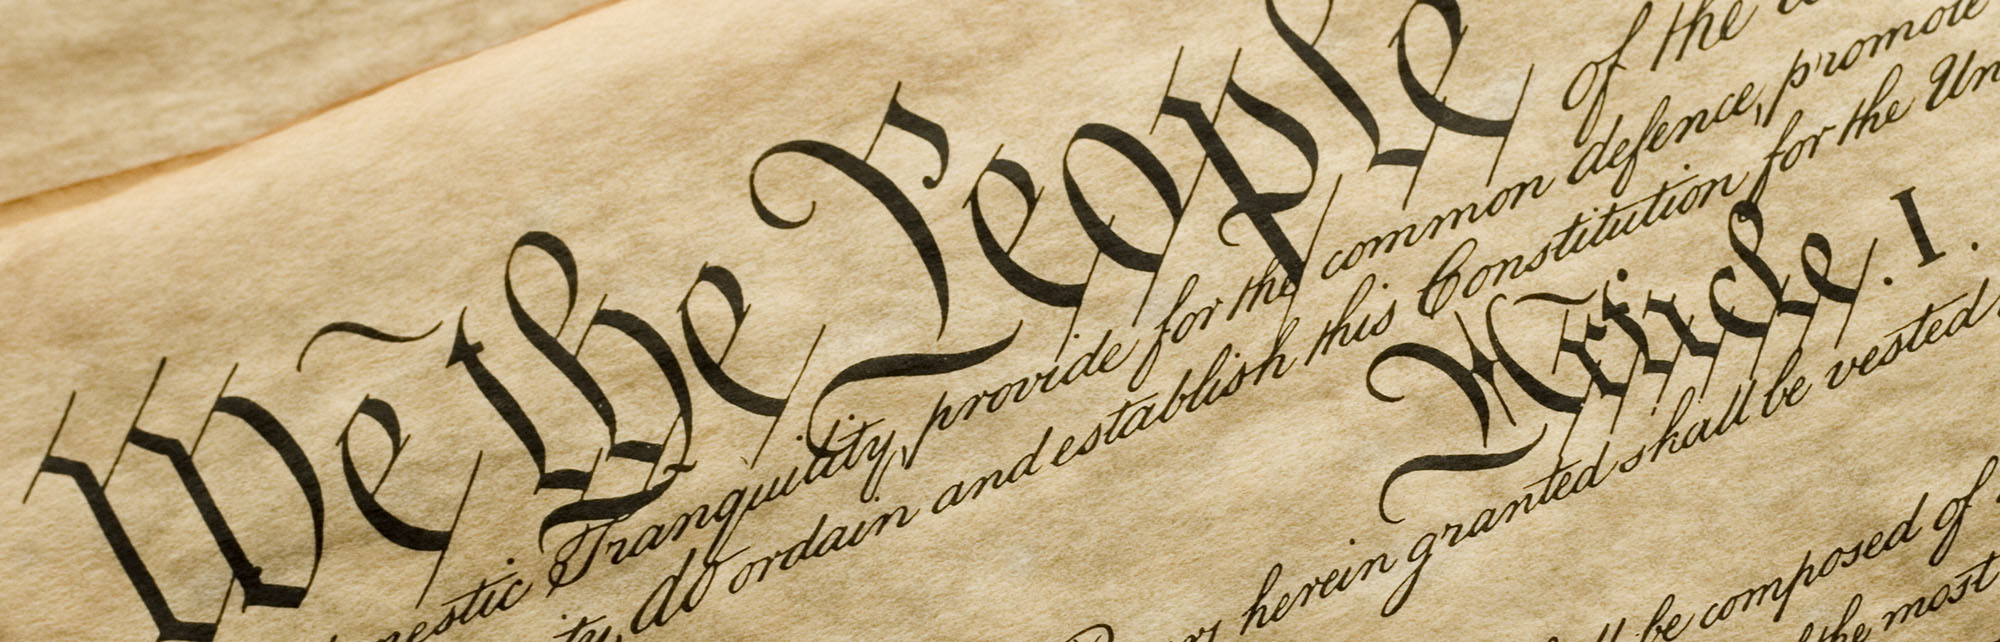 We the People of the
domestic Tranquility, provide for the common defence, promote
do ordain and establish this Constitution for the
Article. I.
herein granted shall be vested
be composed of
the most